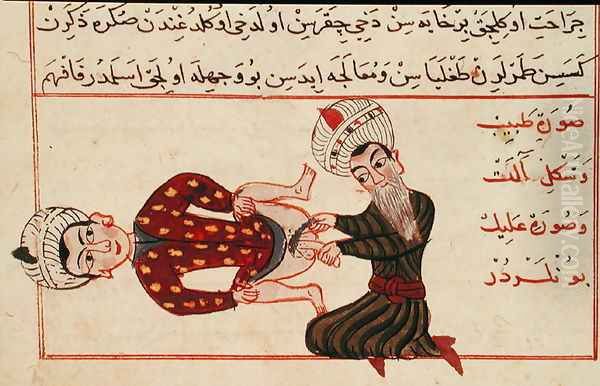 جراحت اوكلیجق برخایه سن دخی چقرسن اولدخی اوكلدغندن صكره ذكرن
كسسن طمرلرن طغلیاسن ومعالجه ایدسن بووجهله اولجی اسلمدر فافهم
صورة طبیب
وشكل آلت
وصورة علیل
بونلردر